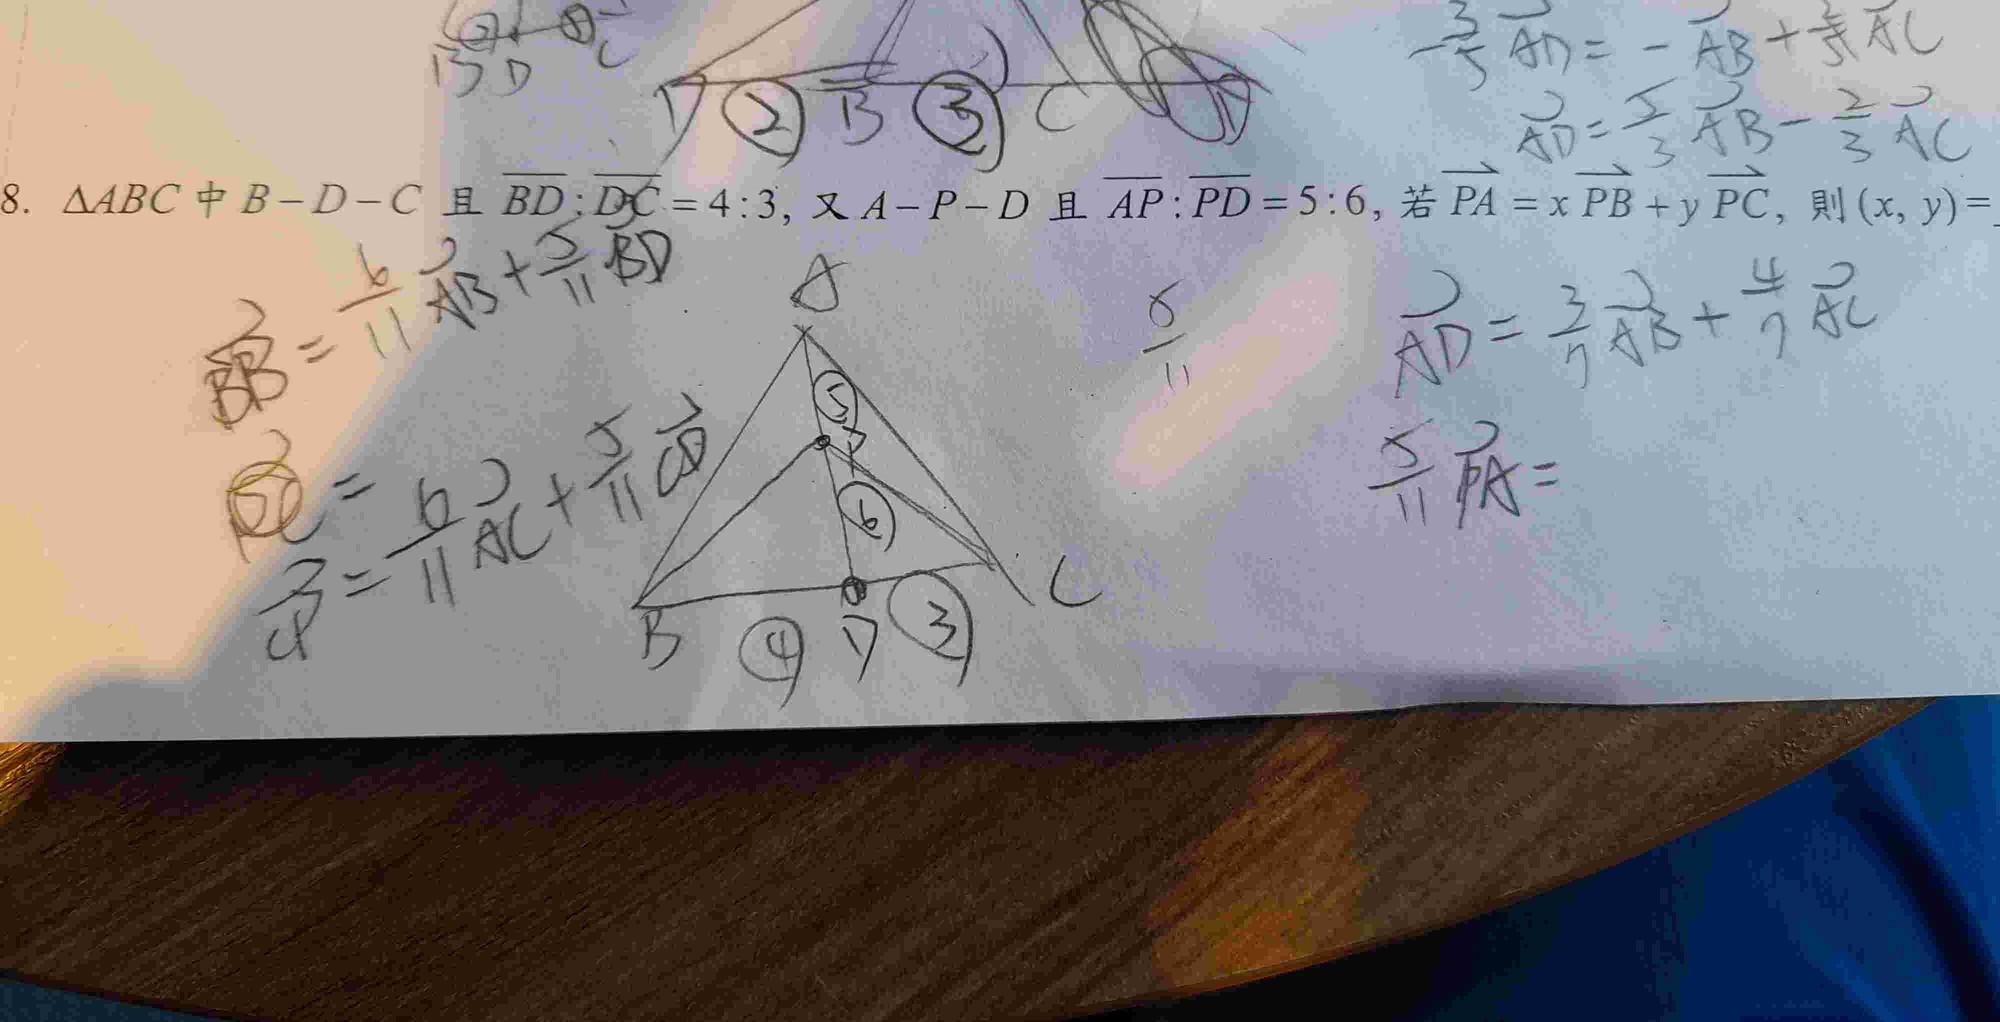 B D C
D ② B ③ C
-3/5 AD = - AB + 2/5 AC
AD = 5/3 AB - 2/3 AC
8. ΔABC 中 B-D-C 且 BD : DC = 4:3, 又 A-P-D 且 AP : PD = 5:6, 若 PA = x PB + y PC, 則 (x, y) =
BP = 6/11 AB + 5/11 BD
= 6/11 AC + 5/11 CD
CP
A
⑤
P
⑥
B ④ D ③ C
5/11
AD = 3/7 AB + 4/7 AC
5/11 PA =